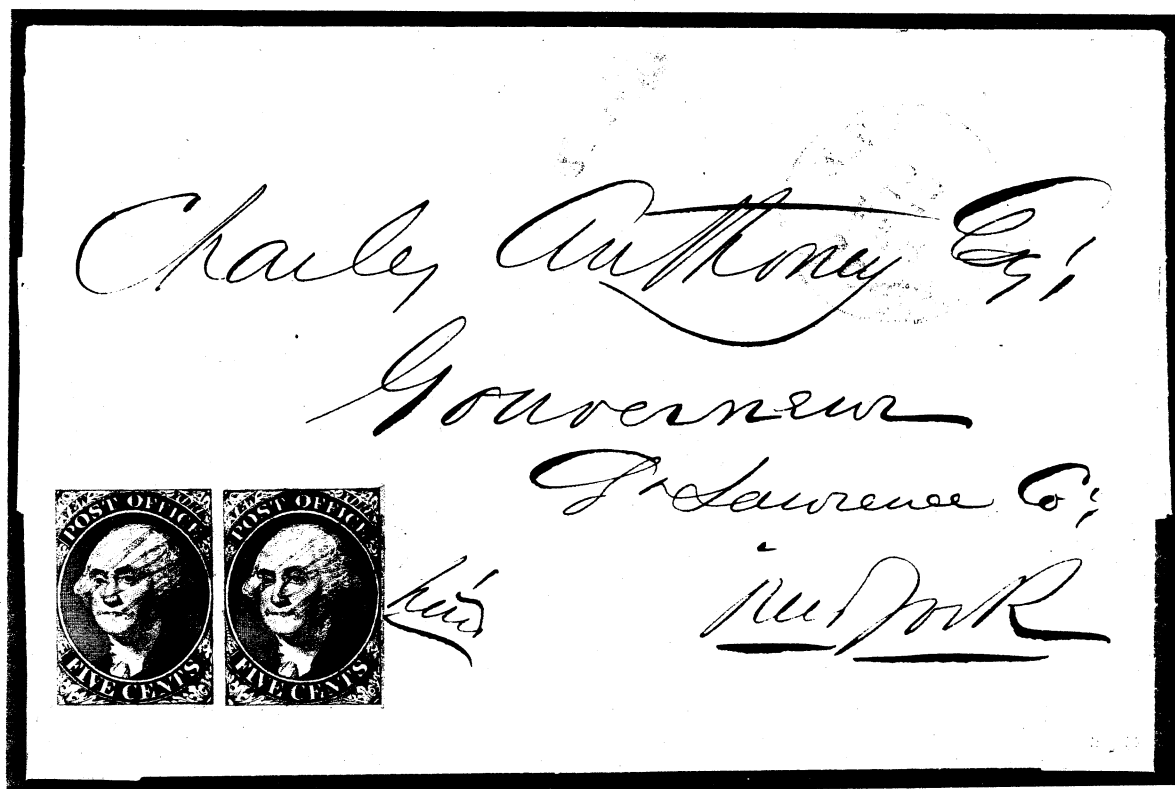 Charles Anthony Esq;
Gouverneur
St Lawrence Co;
New York
NEW YORK
POST OFFICE
FIVE CENTS
NEW YORK
POST OFFICE
FIVE CENTS